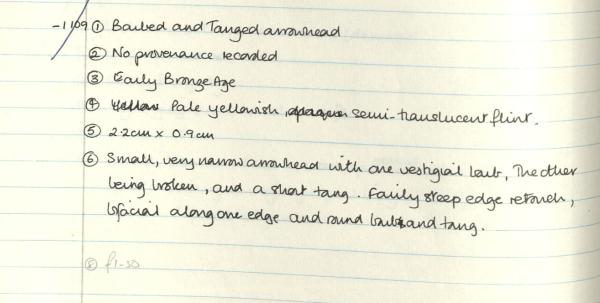 -1109 ① Barbed and Tanged arrowhead
② No provenance recorded
③ Early Bronze Age
④ Yellow Pale yellowish, opaque semi-translucent flint.
⑤ 2.2cm x 0.9cm
⑥ Small, very narrow arrowhead with one vestigial barb, The other
being broken, and a short tang. Fairly steep edge retouch,
bifacial along one edge and round barb and tang.
⑧ f1-50